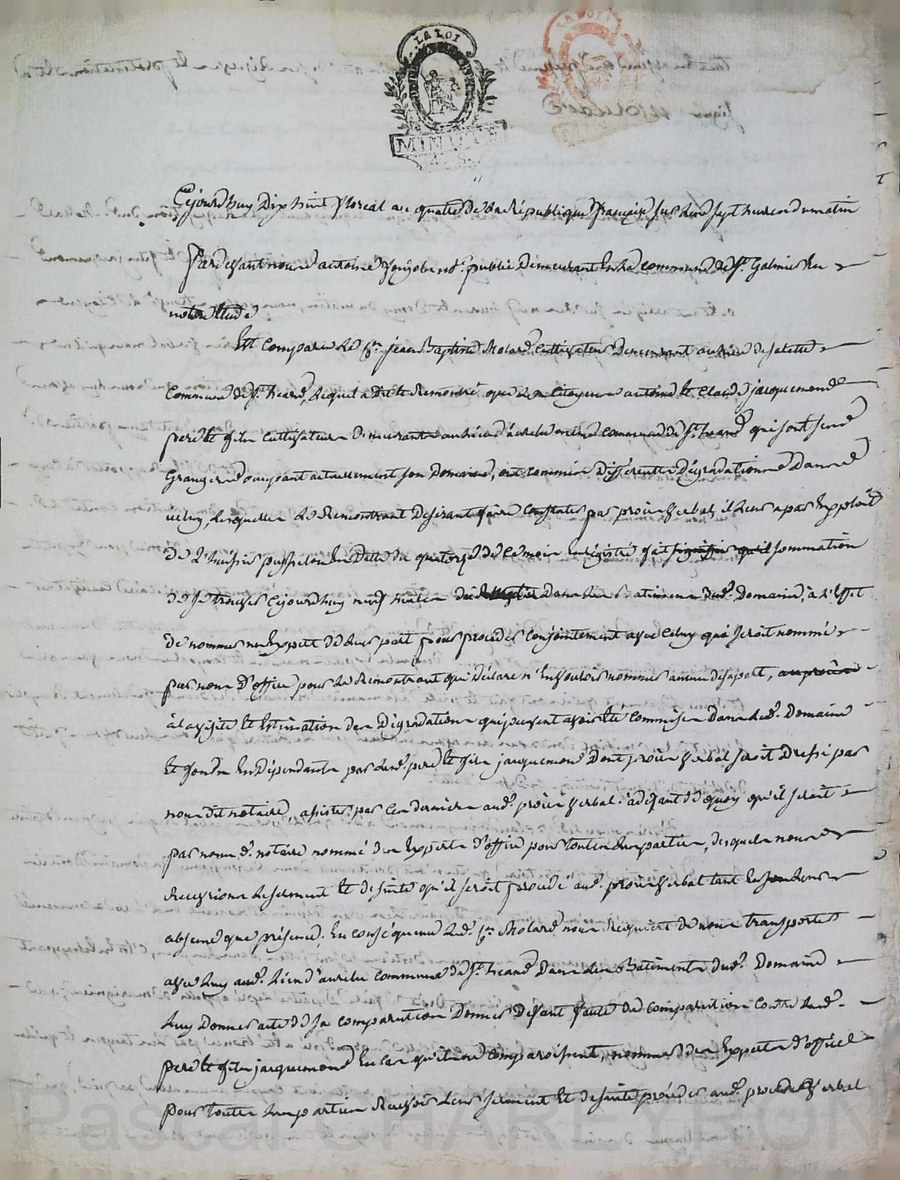 LA LOI
MINUTE
Cejourdhuy dix huit floreal an quatre de la république française sur les sept heures du matin
Pardevant nous antoine notaire public demeurant en la commune de St. Galmier en
notre étude
Est comparu le Cen. jean Baptiste Molard Cultivateur demeurant au lieu de
commune de St. lequel a dit et Remontré que les Citoyens antoine et Claude jacquemond
pere et fils cultivateurs demeurants au lieu d'aurelle même commune de St. qui sont ses
Grangers occupant actuellement son Domaine, ont commis différentes dégradations dans
icelluy, lesquelles le Remontrant désirant faire constater par procès verbal, il leur a par Exploit
de L'huissier pusselon en datte du quatorze de ce mois enregistré fait sommation
de se trouver cejourdhuy neuf matin dans les Batiments dud. Domaine, à l'effet
de nommer un Expert de leur part pour proceder conjointement avec celuy qui seroit nommé
par nous d'office pour le Remontrant qui déclare n'en vouloir nommer aucun de sa part,
à la visite et Estimation des dégradations qui peuvent avoir été commises dans led. Domaine
et fonds en dépendants par lesd. pere et fils jacquemond dont procès verbal seroit dressé par
nous dit notaire, assisté par ces derniers aud. procès verbal adéfaut de quoy qu'il seroit
par nous d. notaire nommé des Experts d'office pour toutes les parties, desquels nous
Recevrions le serment et desuite qu'il seroit procédé aud. procès verbal tant en leur
absence que présence. En conséquence led. Cen. Molard nous Requiert de nous transporter
avec luy aud. Lieu d'aurelle commune de St. dans les Batiments dud. Domaine
luy donner acte de sa comparution donner défaut faute de comparution contre lesd.
pere et fils jacquemond en cas qu'ils ne comparoissent, nommer des Experts d'office
pour toutes les parties Recevoir leur serment et desuite procéder aud. procès verbal
Pascal CHAREYRON